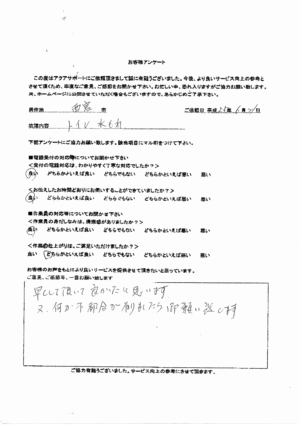 お客様アンケート
この度はアクアサポートにご依頼頂きまして誠に有難うございました。今後、より良いサービス向上の参考と
させて頂くため、率直なご意見、ご感想をお聞かせ下さい。お忙しい中、恐れ入りますがご協力お願い致します。
又、ホームページに公開させていただく場合もございますので、あらかじめご了承下さい。
居住地 西宮 ご依頼日 平成
故障内容 トイレ 水もれ
下記アンケートにご協力お願い致します。該当項目にマル印をつけて下さい。
■電話受付の対応等についてお聞かせ下さい
<受付の電話対応は、わかりやすく丁寧な対応でしたか?>
良い どちらかといえば良い どちらでもない どちらかといえば悪い 悪い
<お伝えしたお時間どおりにお伺いすることができていましたか?>
良い どちらかといえば良い どちらでもない どちらかといえば悪い 悪い
■作業員の対応等についてお聞かせ下さい
<作業員の身だしなみは、清潔感がありましたか?>
良い どちらかといえば良い どちらでもない どちらかといえば悪い 悪い
<作業の仕上がりは、ご満足いただけましたか?>
良い どちらかといえば良い どちらでもない どちらかといえば悪い 悪い
お客様のお声をもとにより良いサービスを提供させて頂きたいと思っています。
ご意見、ご感想等、一言お願い致します
早くして頂いて良かったと思います
又、何か不都合が有れましたら御願い致します
ご協力有難うございました。サービス向上の参考にさせて頂きます。